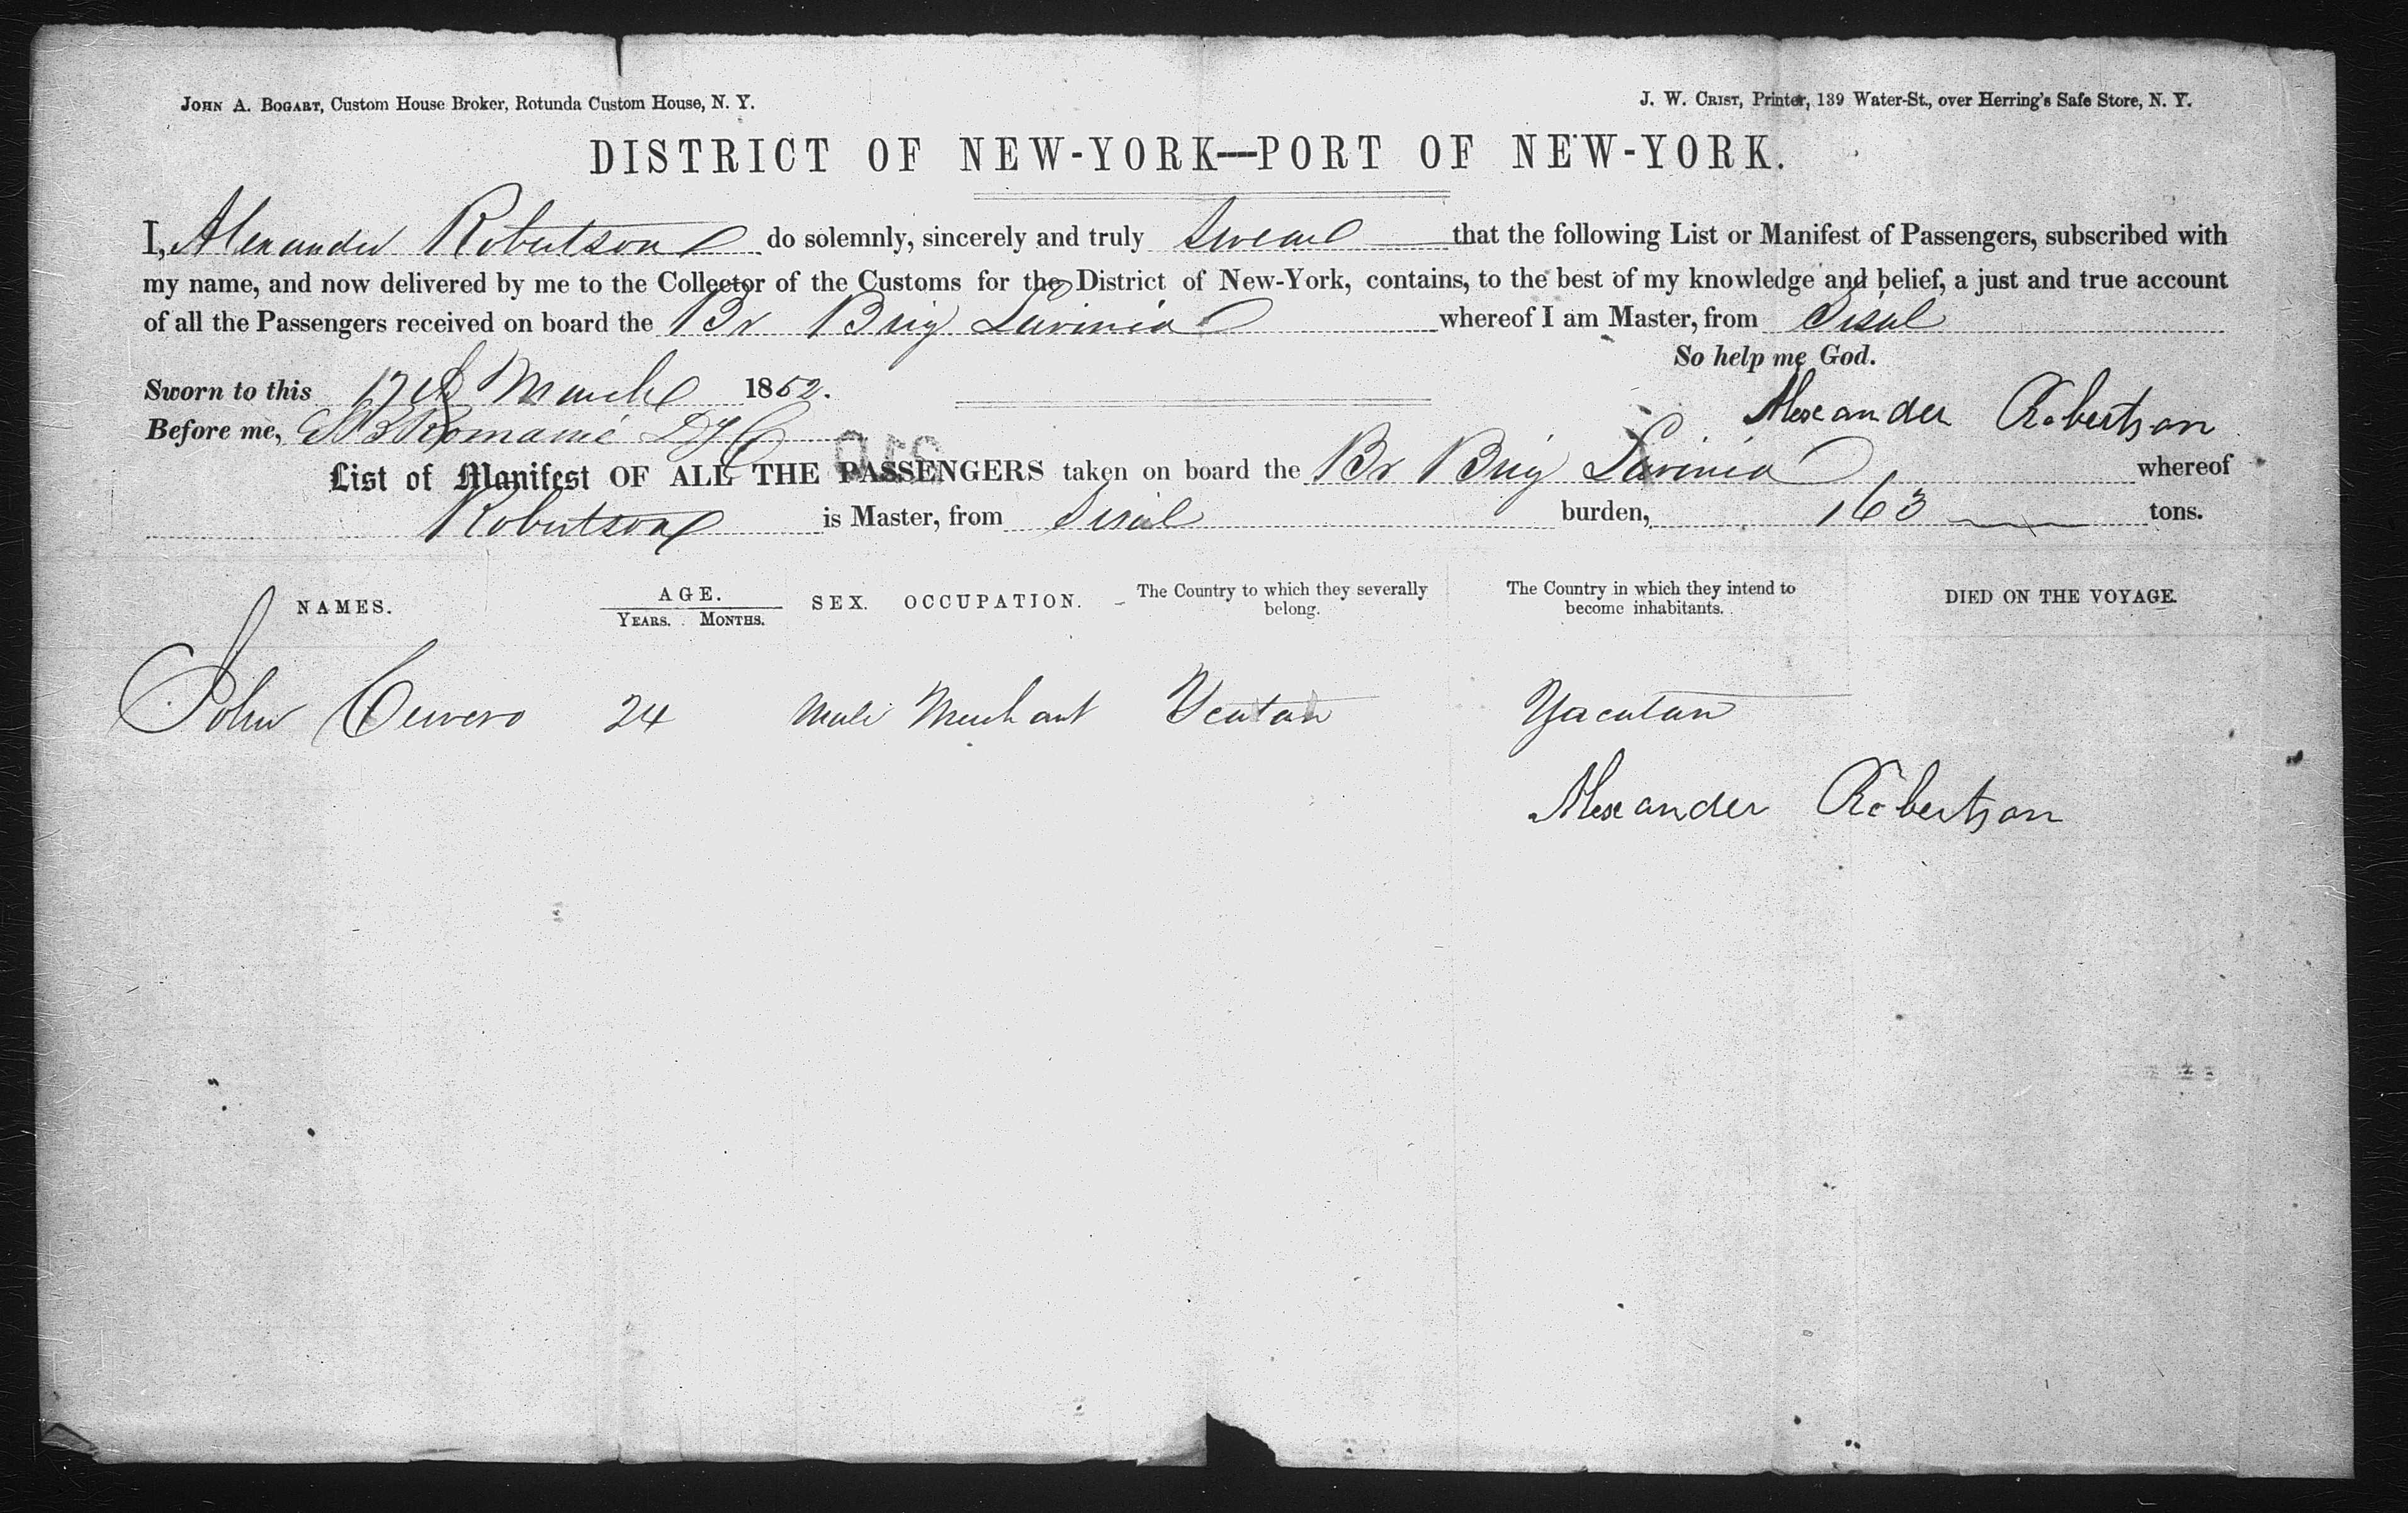 JOHN A. BOGART, Custom House Broker, Rotunda Custom House, N. Y.
J. W. CRIST, Printer, 139 Water-St., over Herring's Safe Store, N. Y.
DISTRICT OF NEW-YORK—PORT OF NEW-YORK.
I, Alexander Robertson do solemnly, sincerely and truly swear that the following List or Manifest of Passengers, subscribed with
my name, and now delivered by me to the Collector of the Customs for the District of New-York, contains, to the best of my knowledge and belief, a just and true account
of all the Passengers received on board the Br Brig Lavinia whereof I am Master, from Sisal
So help me God.
Sworn to this 17th March 1852.
Alexander Robertson
Before me, Romaine
List of Manifest OF ALL THE PASSENGERS taken on board the Br Brig Lavinia whereof
Robertson is Master, from Sisal burden, 163 tons.
NAMES. AGE. SEX. OCCUPATION. The Country to which they severally belong. The Country in which they intend to become inhabitants. DIED ON THE VOYAGE.
YEARS. MONTHS.
John 24 Male Merchant Ycatan Yacatan
Alexander Robertson